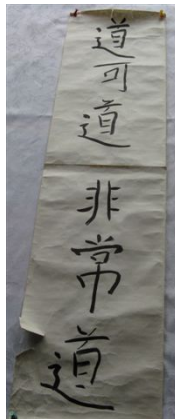 道可道非常道